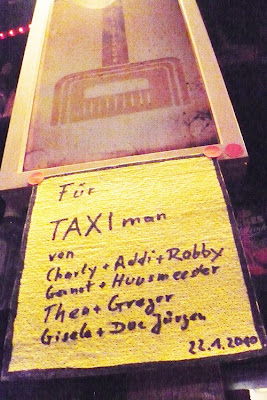 Für
TAXI man
von
Charly + Addi + Robby
Gernot + Huusmeester
Theo + Gregor
Gisela + Doc Jürgen
22.1.2010